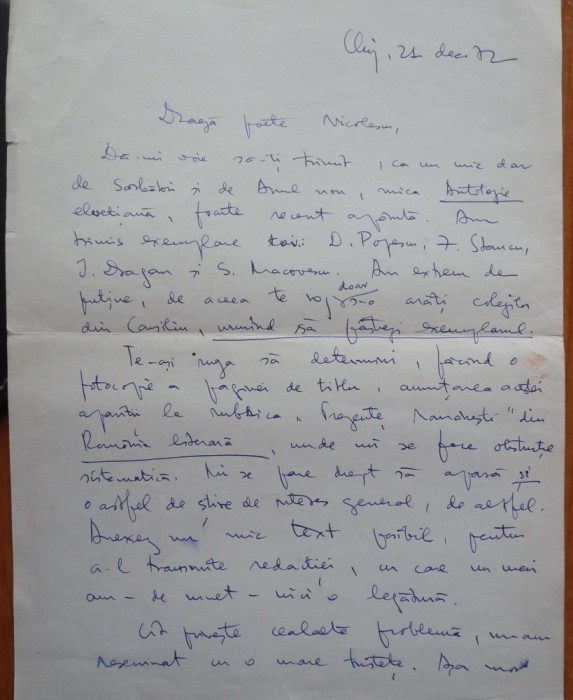 Cluj, 21 dec. 72
Dragă poete Nicolescu,
Dă-mi voie să-ți trimit, ca un mic dar
de Sărbători și de Anul nou, mica Antologie
, foarte recent apărută. Am
trimis exemplare tov.: D. Popescu, Z. Stancu,
I. Drăgan și G. Macovescu. Am extrem de
puține, de aceea te rog doar să-o arăți colegilor
din Consiliu, urmînd să păstrezi exemplarul.
Te-aș ruga să determini, făcînd o
fotocopie a paginei de titlu, anunțarea acestei
apariții la rubrica „Prezențe românești" din
România literară, unde mi se face obstrucție
sistematică. Mi se pare drept să apară și
o astfel de știre de interes general, de altfel.
Anexez un mic text posibil, pentru
a-l transmite redacției, cu care nu mai
am - de mult - nici o legătură.
Cît privește cealaltă problemă, m-am
resemnat cu o mare tristețe. Așa